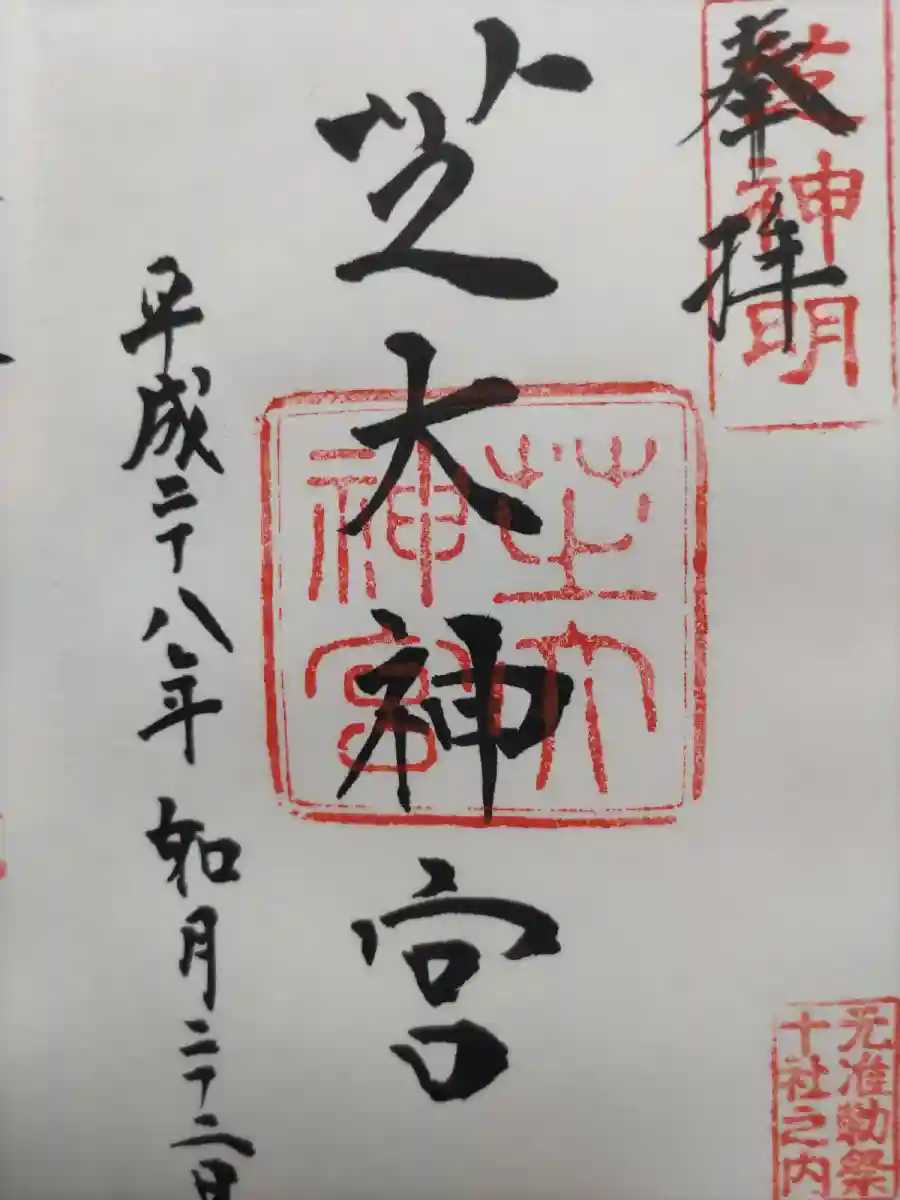 奉拝
芝神明
元准勅祭
十社之内
芝大神宮
芝大
神宮
平成二十八年 如月二十二日